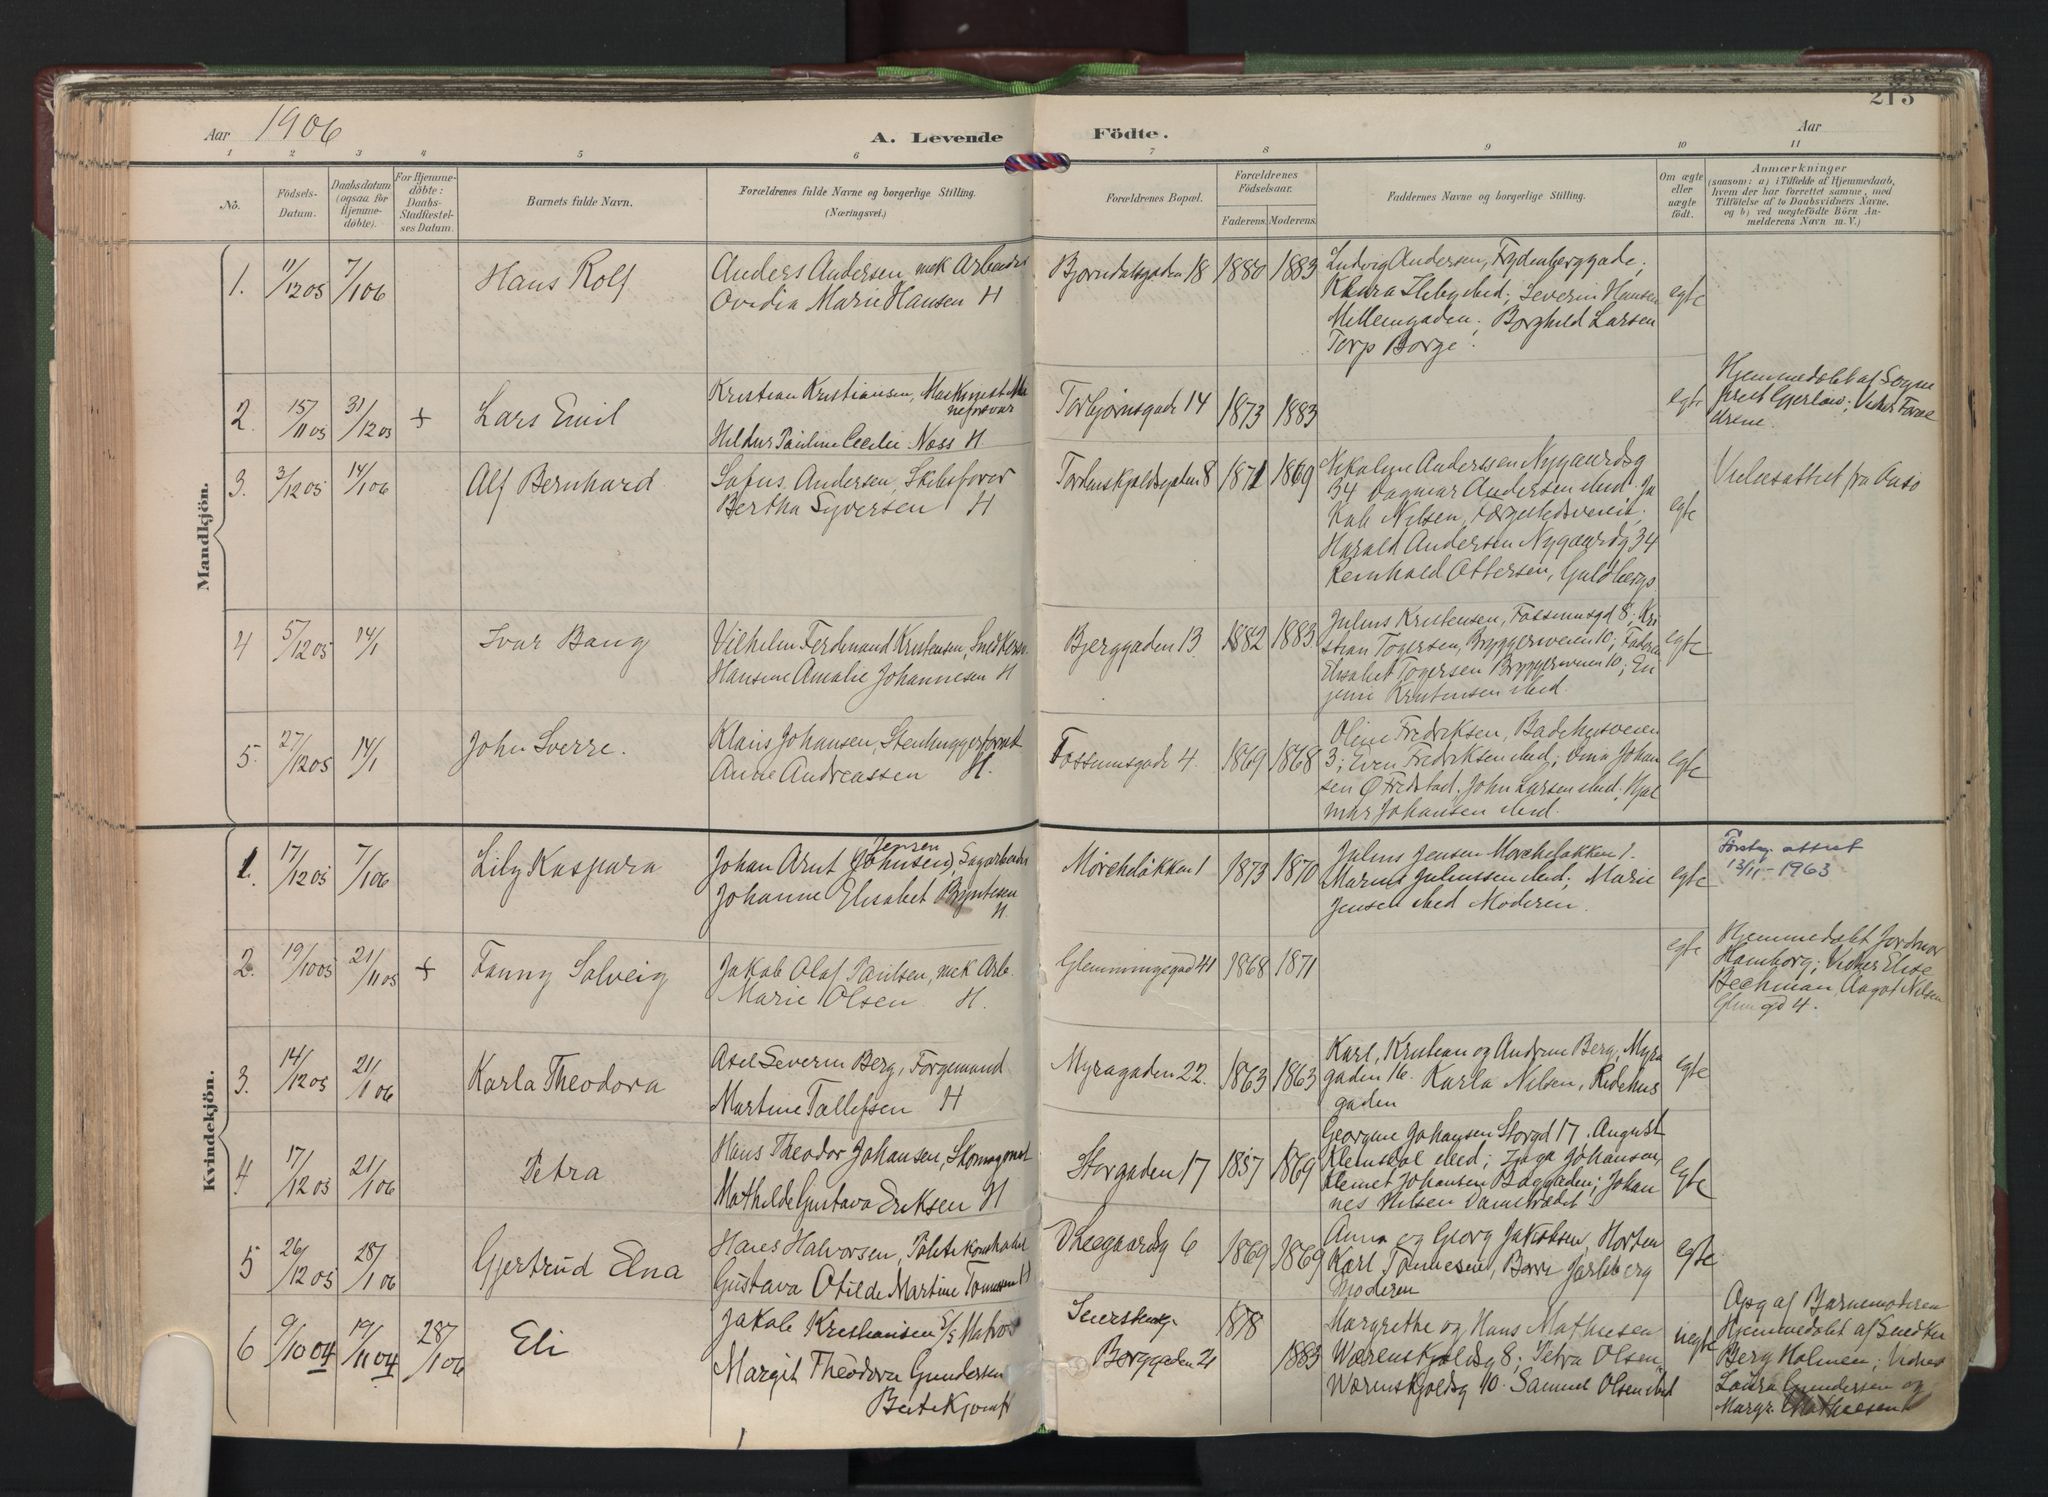 Aar 1906
A. Levende
Födte.
Aar
213
1 2 3 4 5 6 7 8 9 10 11
No.
Födsels-
Datum.
Daabsdatum
(ogsaa for
Hjemme-
döbte).
For Hjemme-
döbte:
Daabs-
Stadfæstel-
ses Datum.
Barnets fulde Navn.
Forældrenes fulde Navne og borgerlige Stilling.
(Næringsvei.)
Forældrenes Bopæl.
Forældrenes
Födselsaar.
Faderens. Moderens.
Faddernes Navne og borgerlige Stilling.
Om ægte
eller
uægte
födt.
Anmærkninger
(saasom: a) i Tilfælde af Hjemmedaab,
hvem der har forrettet samme, med
Tilföielse af to Daabsvidners Navne,
og b) ved uægtefödte Börn An-
melderens Navn m. V.)
Mandkjön.
1. 11/12 05 7/1 06 Hans Rolf
Anders Andersen, mek Arbeider
Ovedia Marie Hansen H
Bjørndalsgaden 18 1880 1883
Ludvig Andersen,
Klara Ilebg ibid; Severin Hansen
Mellemgaden; Borghild Larsen
Torp Borge.
egte
2. 15/11 05 31/12 05 + Lars Emil
Kristian Kristiansen,
Hildur Pauline Cecilie Næss H
Torbjørnsgade 14 1873 1883
egte
Hjemmedøbt af Sogne
prest Gjerløw; Vidner Foræl
drene.
3. 3/12 05 14/1 06 Alf Bernhard
Sofus Andersen, Skibsfører
Bertha Syversen H
Tordenskjoldsgaden 8 1871 1869
Nikoline Anderssen Nygaardsg
34 Dagmar Andersen ibid. Ja
kob Nilsen,
Harald Andersen Nygaardsg 34
Reinhold Ottersen, Guldbergs
egte
4 5/12 05 14/1 Ivar Bang
Vilhelm Ferdinand Kristensen, Snedkersv
Hansine Amalie Johannesen H
Bjerggaden 13. 1882 1883
Julius Kristensen, Fossumsgd 8; Kri
stian Togersen, Bryggerveien 10;
Elisabet Togersen Bryggerveien 10; Eu
genie Kristensen ibid.
egte
5. 27/12 05 14/1 John Sverre.
Klaus Johansen, Stenhuggerformt
Anne Andreassen H.
Fossumsgade 4. 1869 1868
Oline Fredriksen, Badehusveien
3; Even Fredriksen ibid; Johan
sen Ø Fredstad. John Larsen ibid; Hjal
mar Johansen ibid.
egte
Kvindekjön.
1. 17/12 05 7/1 06 Lily Kaspara
Jensen
Johan Arnt (Johnsen), Sagarbeider
Johanne Elisabet Byntesen
H.
Mørchløkken 1 1873 1870
Julius Jensen Mørchløkken 1.
Marius Juliussen ibid; Marie
Jensen ibid Moderen.
egte
attest
13/11-1963
2. 19/10 05 21/11 05 + Fanny Solveig
Jakob Olaf Paulsen, mek Arb.
Marie Olsen. H.
Glemmingegad 41 1868 1871
egte
Hjemmedøbt Jordmor
Hamborg; Vidner Elise
Bechman, Aagot Nilsen
Glemgd 4.
3. 14/12 05 21/1 06 Karla Theodora
Axel Severin Berg, Forgemand
Martine Tollefsen H
Myragaden 22. 1863 1863
Karl, Kristian og Andrine Berg, Myra
gaden 16. Karla Nilsen, Ridehus
gaden
egte
4 17/12 05 21/1 06 Petra
Hans Theodor Johansen, Skomagermst
Mathilde Gustava Eriksen H
Storgaden 17 1857 1869
Georgine Johansen Storgd 17. August
ibid; Inga Johansen,
Klemet Johansen Baggaden; Johan
nes Nilsen
egte
5 26/12 05 28/1 06 Gjertrud Elna
Hans Halvorsen, Politikonstabel
Gustava Otilde Martine Tønnesen H
6 1869 1869
Anna og Georg Jakobsen, Horten
Karl Tønnesen, Borre Jarlsberg
Moderen
egte
6 9/10 04 19/11 04 28/1 06 Eli
Jakob Kristiansen Matros
Margit Theodora Gundersen
Borggaden 21 1878 1883
Margrethe og Hans Mathisen
Wærenskjoldsg 8; Petra Olsen
Wærnskjoldsg 10. Samuel Olsen ibid
uegte
Opg af Barnemoderen
Hjemmedøbt af Snedker
Berg Holmen; Vidner
Laura Gundersen og
Margr. Mathiesen